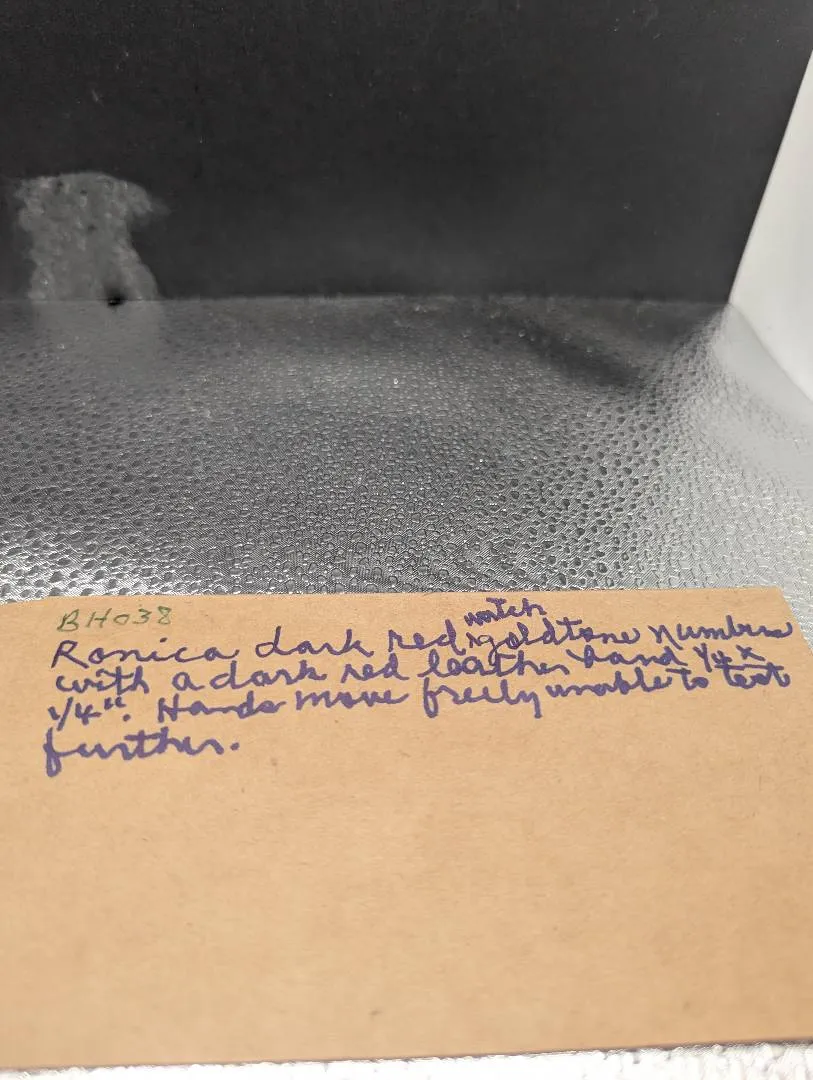 BH038
Ronica dark red watch goldtone numbers
with a dark red leather band 1/4 x
1/4". Hands move freely unable to test
further.